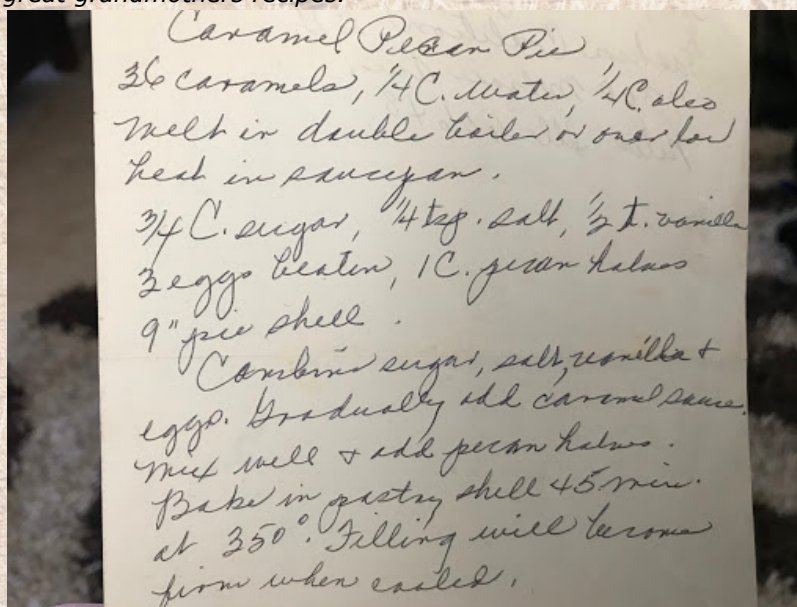 great grandmothers recipes.
Caramel Pecan Pie
36 caramels, 1/4 C. water, 1/4 C. oleo
Melt in double boiler or over low
heat in saucepan.
3/4 C. sugar, 1/4 tsp. salt, 1/2 t. vanilla
3 eggs beaten, 1 C. pecan halves
9" pie shell.
Combine sugar, salt, vanilla +
eggs. Gradually add caramel sauce.
Mix well + add pecan halves.
Bake in pastry shell 45 min.
at 350°. Filling will become
firm when cooled.